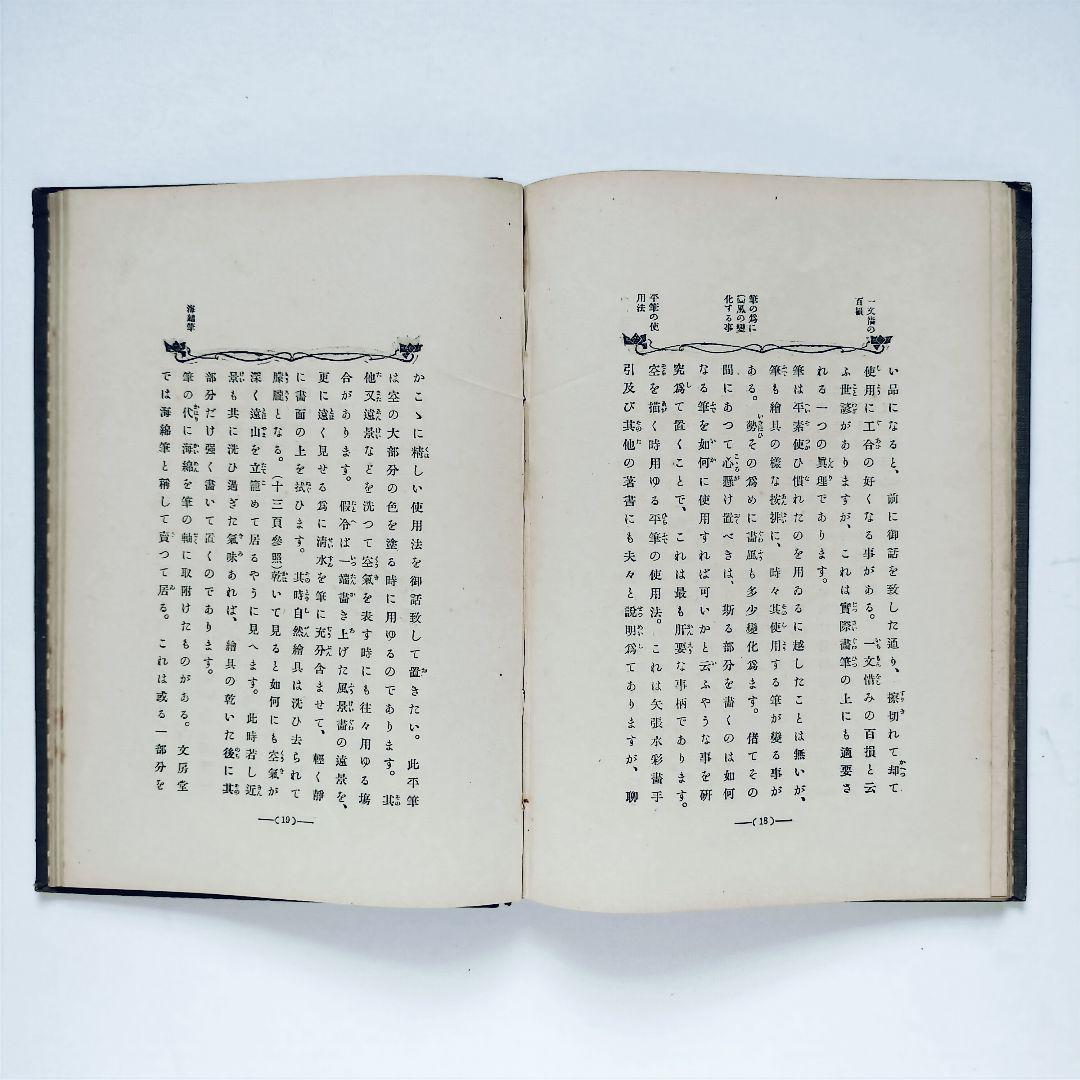 一文惜の
百損
筆の爲に
畫風の變
化する事
平筆の使
用法
い品になると、前に御話を致した通り、擦切れて却て
使用に工合の好くなる事がある。一文惜みの百損と云
ふ世諺がありますが、これは實際畫筆の上にも適要さ
れる一つの眞理であります。
筆は平素使ひ慣れたのを用ゐるに越したことは無いが、
筆も繪具の樣な按排に、時々其使用する筆が變る事が
ある。勢その爲めに畫風も多少變化爲ます。偖てその
間にあつて心懸け置べきは、斯る部分を畫くのは如何
なる筆を如何に使用すれば可いかと云ふやうな事を研
究爲て置くことで、これは最も肝要な事柄であります。
空を描く時用ゆる平筆の使用法。これは矢張水彩畫手
引及び其他の著書にも夫々と說明爲てありますが、聊
(18)
海綿筆
かこゝに精しい使用法を御話致して置きたい。此平筆
は空の大部分の色を塗る時に用ゆるのであります。其
他又遠景などを洗つて空氣を表す時にも往々用ゆる塲
合があります。假令ば一端畫き上げた風景畫の遠景を、
更に遠く見せる爲に淸水を筆に充分含ませて、輕く靜
に畫面の上を拭ひます。其時自然繪具は洗ひ去られて
朦朧となる。(十三頁參照)乾いて見ると如何にも空氣が
深く遠山を立籠めて居るやうに見へます。此時若し近
景も共に洗ひ過ぎた氣味あれば、繪具の乾いた後に其
部分だけ强く畫いて置くのであります。
筆の代に海綿を筆の軸に取附けたものがある。文房堂
では海綿筆と稱して賣つて居る。これは或る一部分を
(19)